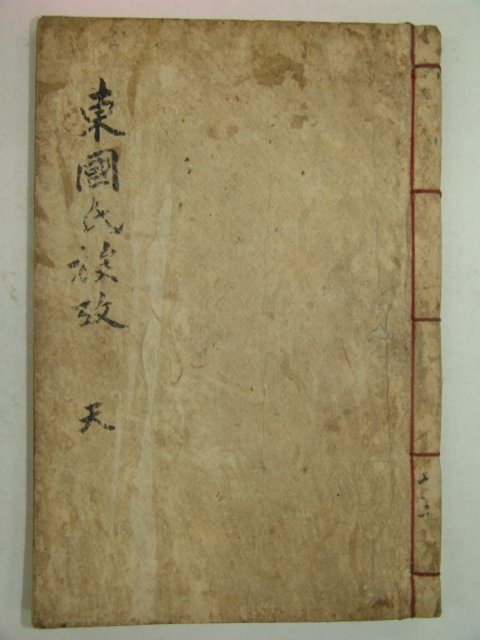 東國氏族攷
天